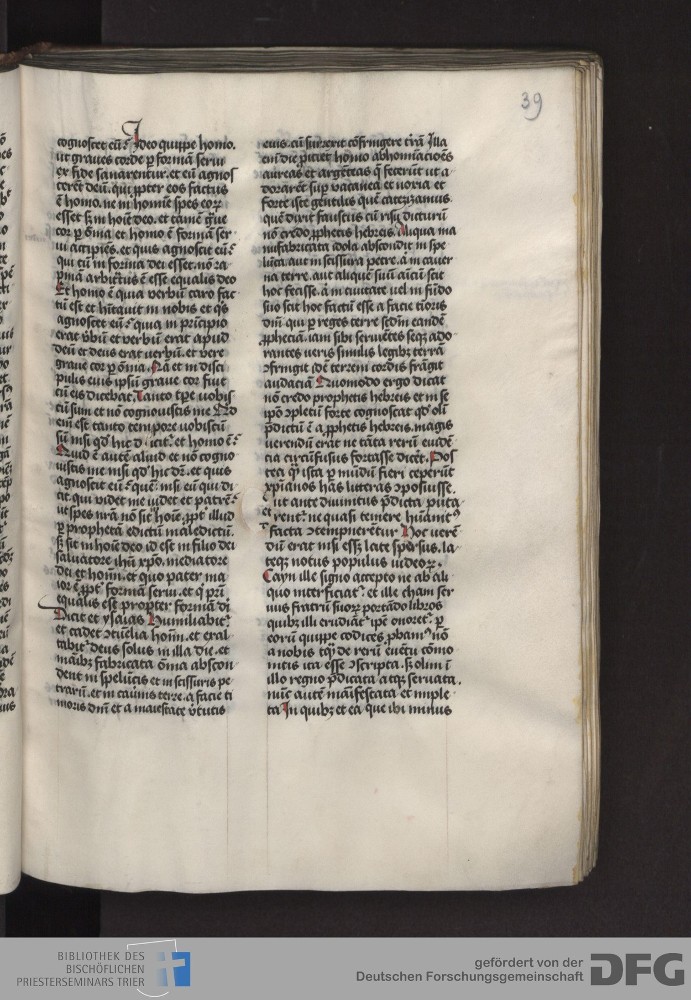 39
cognoscet eū? Ideo quippe homo.
ut graues corde ꝑ formā serui
ex fide sanarentur. et eū agnos
cerēt deū. qui ꝓpter eos factus
ē homo. ne in homīe spes eoꝝ
esset sꝫ in hoīe deo. et tamē g̃ue
cor ꝑ ōmīa et homo ē formā ser
ui accipiēs. et quis agnoscit eū?
qui cū in forma dei esset. nō ra
pinā arbitrꝰ ē esse equalis deo
Et homo ē quia verbū caro fac
tū est et hītauit in nobis et q̇s
agnoscet eū? quia in prīcipio
erat v̄bū et verbū erat apud
deū et deus erat verbū. et vere
graue cor ꝑ ōmīa. Nā et in disci
pulis eius ipsū graue cor fuit
cū eis dicebat. Tanto tp̄e uobis
cū sum et nō cognouistis me
est tanto tempore uobiscū
sū nisi qd̓ hic et homo ē?
Quid ē autē aliud et nō cogno
uistis me nisi qd̓ hic dr̄. et quis
agnoscit eū? quē? nisi eū qui di
cit. qui videt me uidet et patrē?
ut spes nr̄a nō sit ī hoīe. ꝓpt̓ illud
ꝑ prophetā edictū maledictū.
sꝫ sit in hoīe deo. id est in filio dei
saluatore ihū xp̄o. mediatore
dei et homī. et quo pater ma
ior ē ꝓpt̓ formā serui. et q̇ pr̄i
equalis est propter formā di
Dicit et ysaias Humiliabit᷑
et cadet ꝯtūelia homī. et exal
tabit᷑ deus solus in illa die. et
manibꝫ fabricata ōmīa abscon
dent in speluncis et in scissuris pe
trarū. et in cauīnis terre. a facie ti
moris dn̄i et a maiestate v̓tutis
eius. cū surrexerit cōfringere t̓rā Illa
em̄ die ꝓiciet homo abhominacioēs
aureas et argēteas q̄ fecerūt ut a
dorarēt suꝑ uacanea et noxia et
forte iste gentilis quē catezizamus.
quē dixit faustus cū risu dicturū
nō credo ꝓphetis hebreis. Aliqua ma
nufabricata idola abscondit in spe
lūca. aut in scissura petre. a in cauer
na terre. aut aliquē suū amicū scit
hoc fecisse. a in ciuitate uel in fūdo
suo scit hoc factū esse a facie timoris
dn̄i qui ꝑ reges terre sed̄m eandē
ꝓpheciā. iam sibi seruiētes seqꝫ ado
rantes ueris similis legibꝫ terrā
ꝯfringit. idē terreni cordis frāgit
audaciā Quomodo ergo dicat
nō credo prophetis hebreis et in se
ip̄o ꝯpletū forte cognoscat qd̓ olī
p̄dictū ē a ꝓphetis hebreis. magis
uerendū erāt ne tāta rerū euidē
cia circūfusus fortasse dicet. Pos
tea q̄ ista ꝑ mūdū fieri ceperūt
xp̄ianos hās litteras ꝯposuisse.
ut ante diuinitus p̄dicta puta
rent᷑. ne quasi temere hūanitꝰ
facta ꝯtempnerētur Hoc uere
dū erat nisi essꝫ late spersus. la
teqꝫ notus populus iudeoꝝ.
Cayn ille signo accepto ne ab ali
quo interficiat᷑. et ille cham ser
uus fratrū suoꝝ portādo libros
quibꝫ illi erudiāt᷑ ip̄e onoret᷑. ꝑ
eorū quippe codices ꝓbam̄ nō
a nobis tꝙ de rerū euētu cōmo
nitis ita esse ꝯscripta. sꝫ olim ī
illo regno p̄dicata atqꝫ seruata.
nūc autē manifestata et imple
ta In quibꝫ et ea que ibi minus
BIBLIOTHEK DES
BISCHÖFLICHEN
PRIESTERSEMINARS TRIER
gefördert von der
Deutschen Forschungsgemeinschaft
DFG